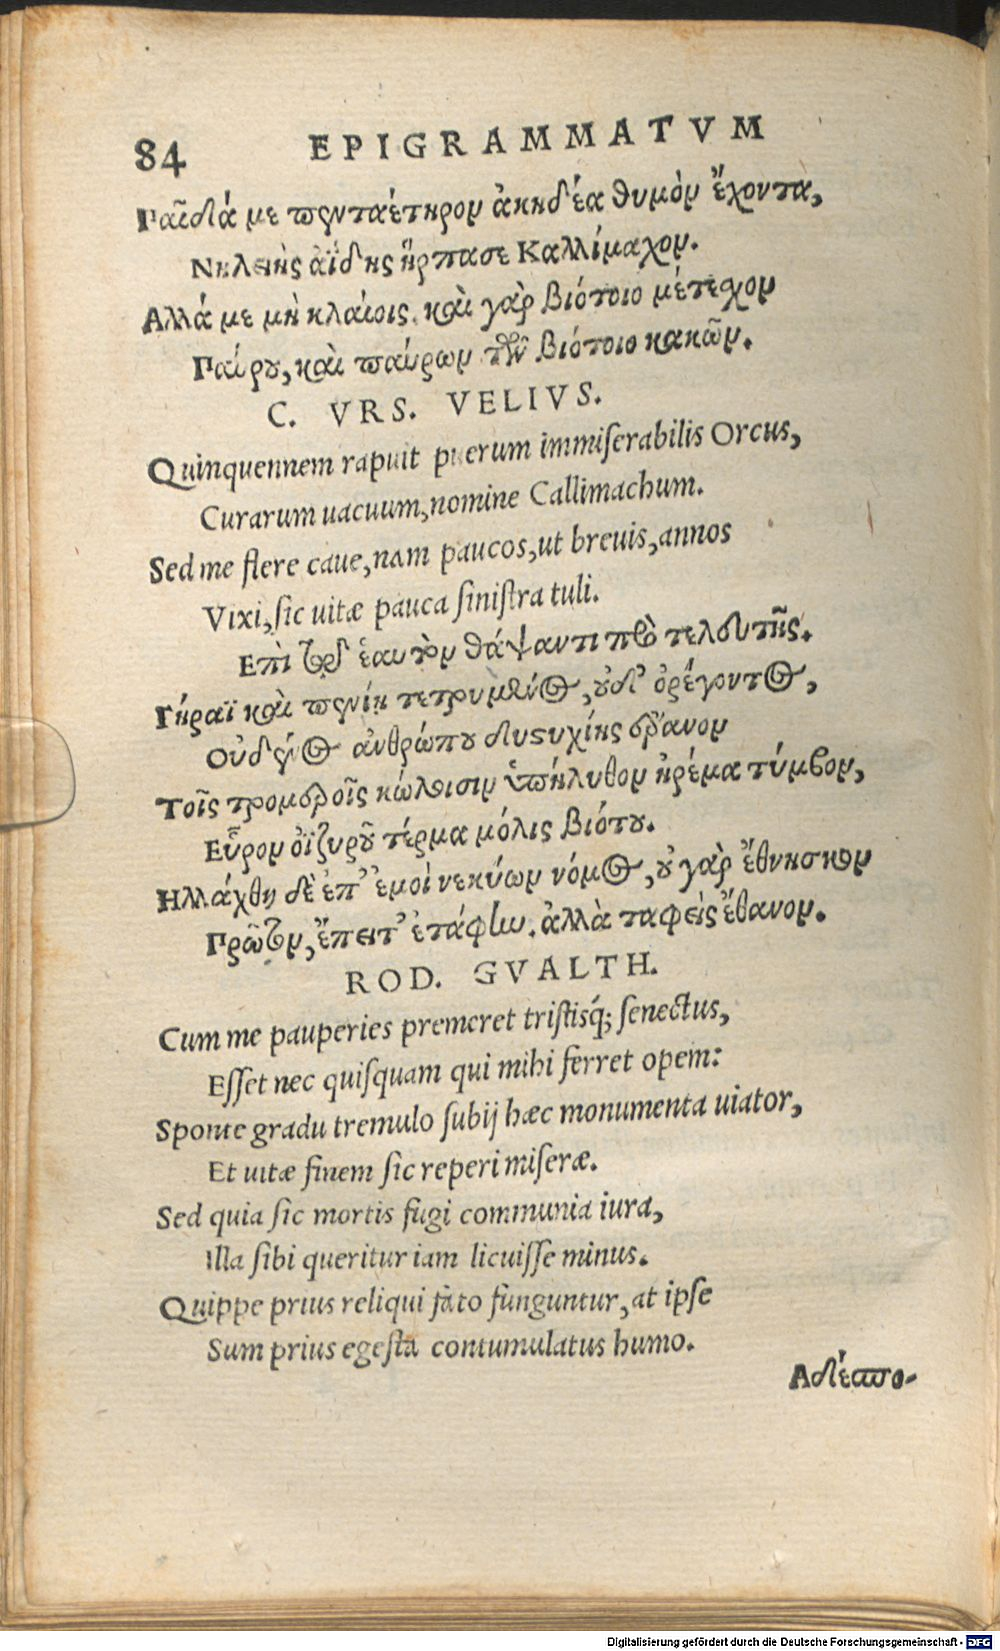 84 EPIGRAMMATVM
Παῖδά με πενταέτηρον ἀκηδέα θυμὸν ἔχοντα,
Νηλειὴς ἀΐδης ἥρπασε Καλλίμαχον.
Αλλά με μὴ κλαίοις. καὶ γὰρ βιότοιο μέτεχον
Παύρου, καὶ παύρων τῶν βιότοιο κακῶν.
C. VRS. VELIVS.
Quinquennem rapuit puerum immiſerabilis Orcus,
Curarum uacuum, nomine Callimachum.
Sed me flere caue, nam paucos, ut breuis, annos
Vixi, ſic uitæ pauca ſiniſtra tuli.
Επὶ τῷ ἑαυτὸν θάψαντι πρὸ τελευτῆς.
Γήραϊ καὶ πενίῃ τετρυμένος, οὐδ' ὀρέγοντος,
Οὐδενὸς ἀνθρώπου δυστυχίης ἔρανον
Τοῖς τρομεροῖς κώλοισιν ὑπήλυθον ἠρέμα τύμβον,
Εὗρον ὀϊζυροῦ τέρμα μόλις βιότου.
Ηλλάχθη δὲ ἐπ' ἐμοὶ νεκύων νόμος, οὐ γὰρ ἔθνησκον
Πρῶτον, ἔπειτ' ἐτάφην. ἀλλὰ ταφεὶς ἔθανον.
ROD. GVALTH.
Cum me pauperies premeret triſtisq́; ſenectus,
Eſſet nec quiſquam qui mihi ferret opem:
Sponte gradu tremulo ſubij hæc monumenta uiator,
Et uitæ finem ſic reperi miſeræ.
Sed quia ſic mortis fugi communia iura,
Illa ſibi queritur iam licuiſſe minus.
Quippe prius reliqui fato funguntur, at ipſe
Sum prius egeſta contumulatus humo.
Αδέσπο-
Digitalisierung gefördert durch die Deutsche Forschungsgemeinschaft - DFG